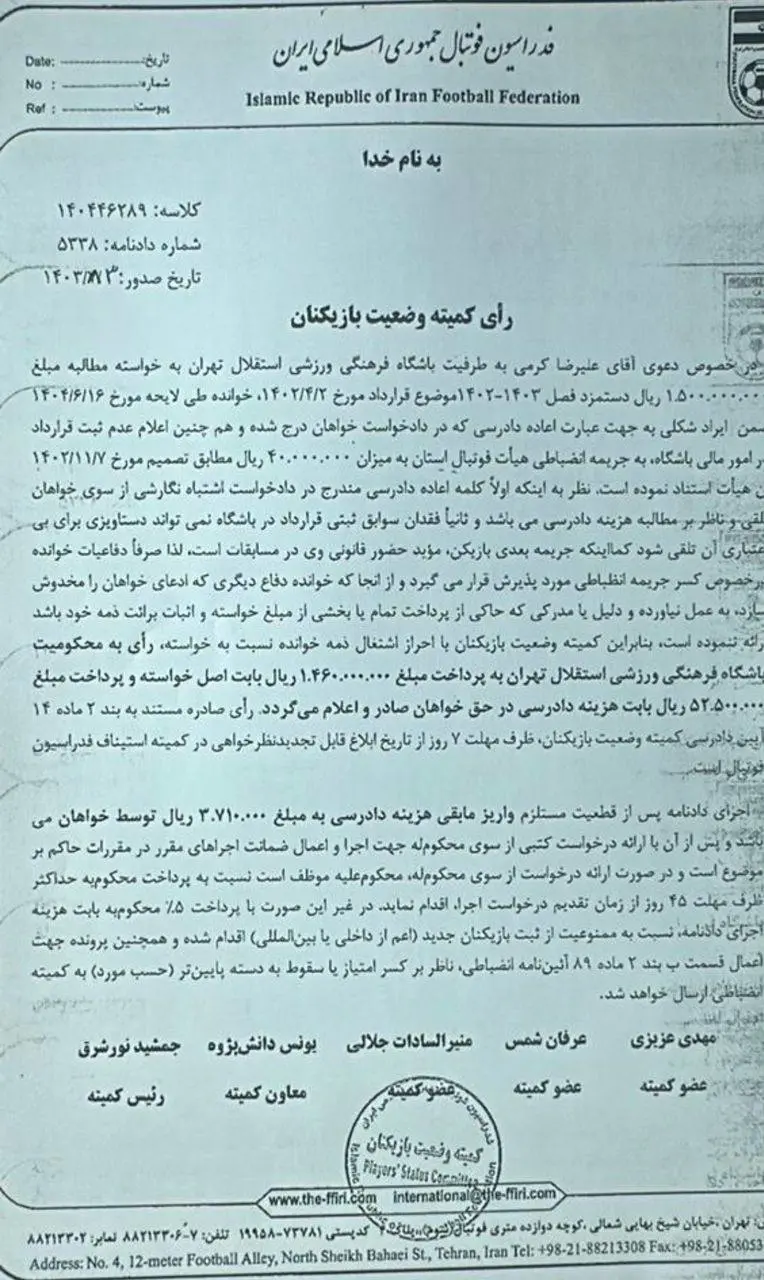 فدراسیون فوتبال جمهوری اسلامی ایران
Islamic Republic of Iran Football Federation
Date: تاریخ:
No : شماره:
Ref : پیوست:
به نام خدا
کلاسه: ۱۴۰۴۴۶۲۸۹
شماره دادنامه: ۵۳۳۸
تاریخ صدور: ۱۴۰۳/
رأی کمیته وضعیت بازیکنان
در خصوص دعوی آقای علیرضا کرمی به طرفیت باشگاه فرهنگی ورزشی استقلال تهران به خواسته مطالبه مبلغ
۱.۵۰۰.۰۰۰.۰۰۰ ریال دستمزد فصل ۱۴۰۳-۱۴۰۲موضوع قرارداد مورخ ۱۴۰۲/۴/۲، خوانده طی لایحه مورخ ۱۴۰۴/۶/۱۶
ضمن ایراد شکلی به جهت عبارت اعاده دادرسی که در دادخواست خواهان درج شده و هم چنین اعلام عدم ثبت قرارداد
در امور مالی باشگاه، به جریمه انضباطی هیأت فوتبال استان به میزان ۴۰.۰۰۰.۰۰۰ ریال مطابق تصمیم مورخ ۱۴۰۲/۱۱/۷
هیأت استناد نموده است. نظر به اینکه اولاً کلمه اعاده دادرسی مندرج در دادخواست اشتباه نگارشی از سوی خواهان
تلقی و ناظر بر مطالبه هزینه دادرسی می باشد و ثانیاً فقدان سوابق ثبتی قرارداد در باشگاه نمی تواند دستاویزی برای بی
اعتباری آن تلقی شود کمااینکه جریمه بعدی بازیکن، مؤید حضور قانونی وی در مسابقات است، لذا صرفاً دفاعیات خوانده
درخصوص کسر جریمه انظباطی مورد پذیرش قرار می گیرد و از آنجا که خوانده دفاع دیگری که ادعای خواهان را مخدوش
سازد، به عمل نیاورده و دلیل یا مدرکی که حاکی از پرداخت تمام یا بخشی از مبلغ خواسته و اثبات برائت ذمه خود باشد
ارائه ننموده است، بنابراین کمیته وضعیت بازیکنان با احراز اشتغال ذمه خوانده نسبت به خواسته، رأی به محکومیت
باشگاه فرهنگی ورزشی استقلال تهران به پرداخت مبلغ ۱.۴۶۰.۰۰۰.۰۰۰ ریال بابت اصل خواسته و پرداخت مبلغ
۵۲.۵۰۰.۰۰۰ ریال بابت هزینه دادرسی در حق خواهان صادر و اعلام می‌گردد. رأی صادره مستند به بند ۲ ماده ۱۴
آیین دادرسی کمیته وضعیت بازیکنان، ظرف مهلت ۷ روز از تاریخ ابلاغ قابل تجدیدنظرخواهی در کمیته استیناف فدراسیون
فوتبال است.
اجرای دادنامه پس از قطعیت مستلزم واریز مابقی هزینه دادرسی به مبلغ ۳.۷۱۰.۰۰۰ ریال توسط خواهان می
باشد و پس از آن با ارائه درخواست کتبی از سوی محکوم‌له جهت اجرا و اعمال ضمانت اجراهای مقرر در مقررات حاکم بر
موضوع است و در صورت ارائه درخواست از سوی محکوم‌له، محکوم‌علیه موظف است نسبت به پرداخت محکوم‌به حداکثر
ظرف مهلت ۴۵ روز از زمان تقدیم درخواست اجرا، اقدام نماید. در غیر این صورت با پرداخت ۵٪ محکوم‌به بابت هزینه
اجرای دادنامه، نسبت به ممنوعیت از ثبت بازیکنان جدید (اعم از داخلی یا بین‌المللی) اقدام شده و همچنین پرونده جهت
اعمال قسمت ب بند ۲ ماده ۸۹ آئین‌نامه انضباطی، ناظر بر کسر امتیاز یا سقوط به دسته پایین‌تر (حسب مورد) به کمیته
انضباطی ارسال خواهد شد.
مهدی عزیزی عرفان شمس منیرالسادات جلالی یونس دانش‌پژوه جمشید نورشرق
عضو کمیته عضو کمیته عضو کمیته معاون کمیته رئیس کمیته
کمیته وضعیت بازیکنان
Players' Status Committee
www.the-ffiri.com international@the-ffiri.com
تهران ،خیابان شیخ بهایی شمالی ،کوچه دوازده متری فوتبال کدپستی ۷۳۷۸۱-۱۹۹۵۸ تلفن: ۷-۸۸۲۱۳۳۰۶ نمابر: ۸۸۲۱۳۳۰۲
Address: No. 4, 12-meter Football Alley, North Sheikh Bahaei St., Tehran, Iran Tel: +98-21-88213308 Fax: +98-21-88053